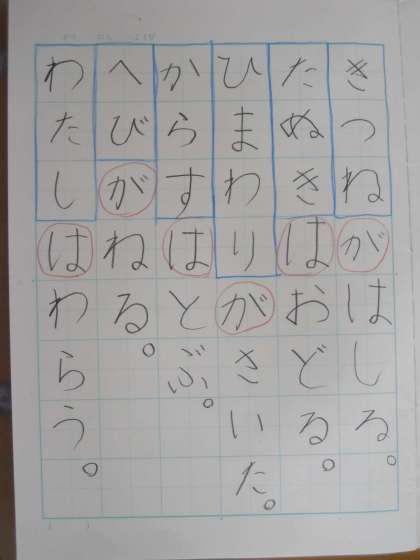 きつねがはしる。
たぬきはおどる。
ひまわりがさいた。
からすはとぶ。
へびがねる。
わたしはわらう。